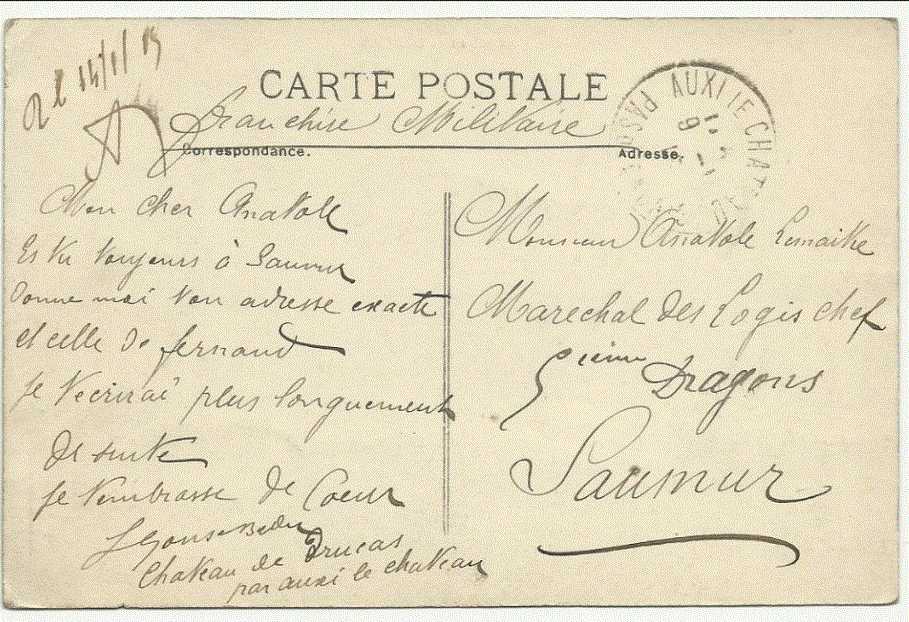 CARTE POSTALE
Franchise Militaire
Correspondance.
Adresse.
AUXI LE CHAT
PAS
Mon cher Anatole
Es tu toujours à Saumur
donne moi ton adresse exacte
et celle de fernand
je t'ecrirai plus longuement
de suite
je t'embrasse de Coeur
Chateau de Drucas
par auxi le chateau
Monsieur Anatole Lemaitre
Marechal des Logis chef
5ieme Dragons
Saumur